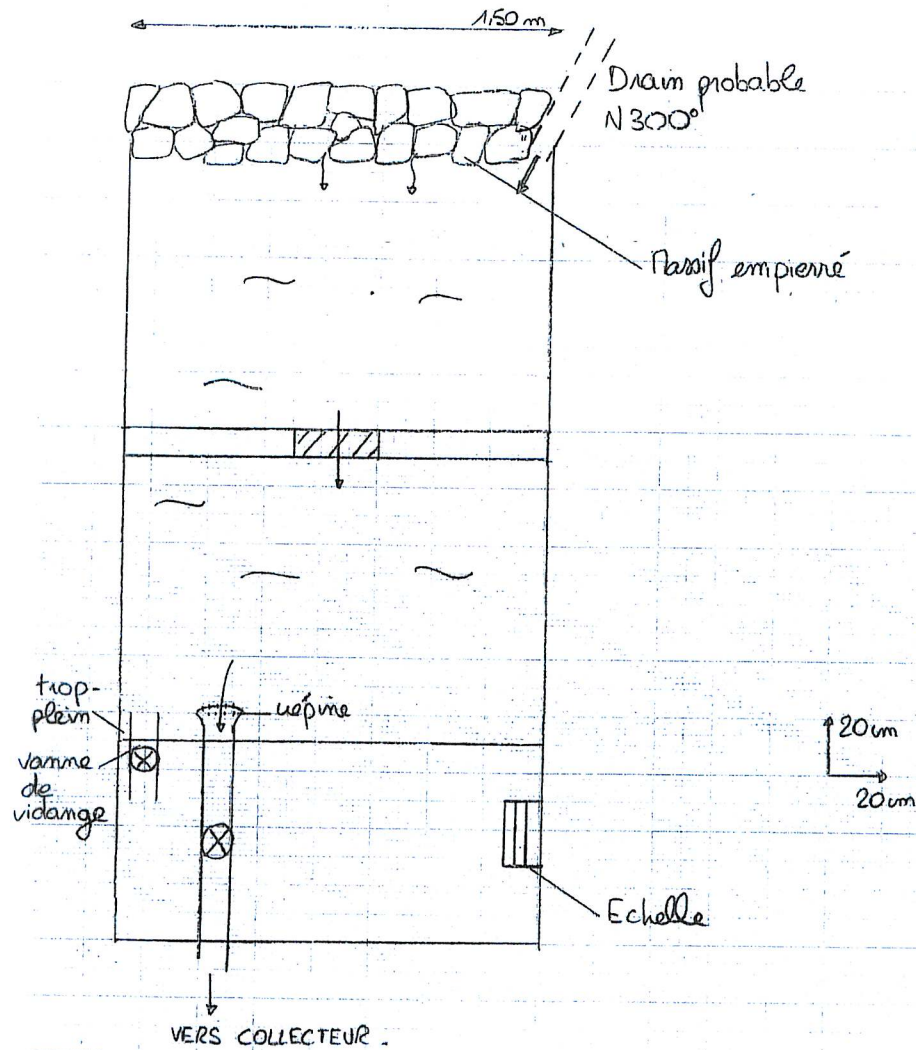 1,50 m
Drain probable
N 300°
Massif empierré
trop-
plein
crépine
vanne
de
vidange
20 cm
20 cm
Echelle
VERS COLLECTEUR .